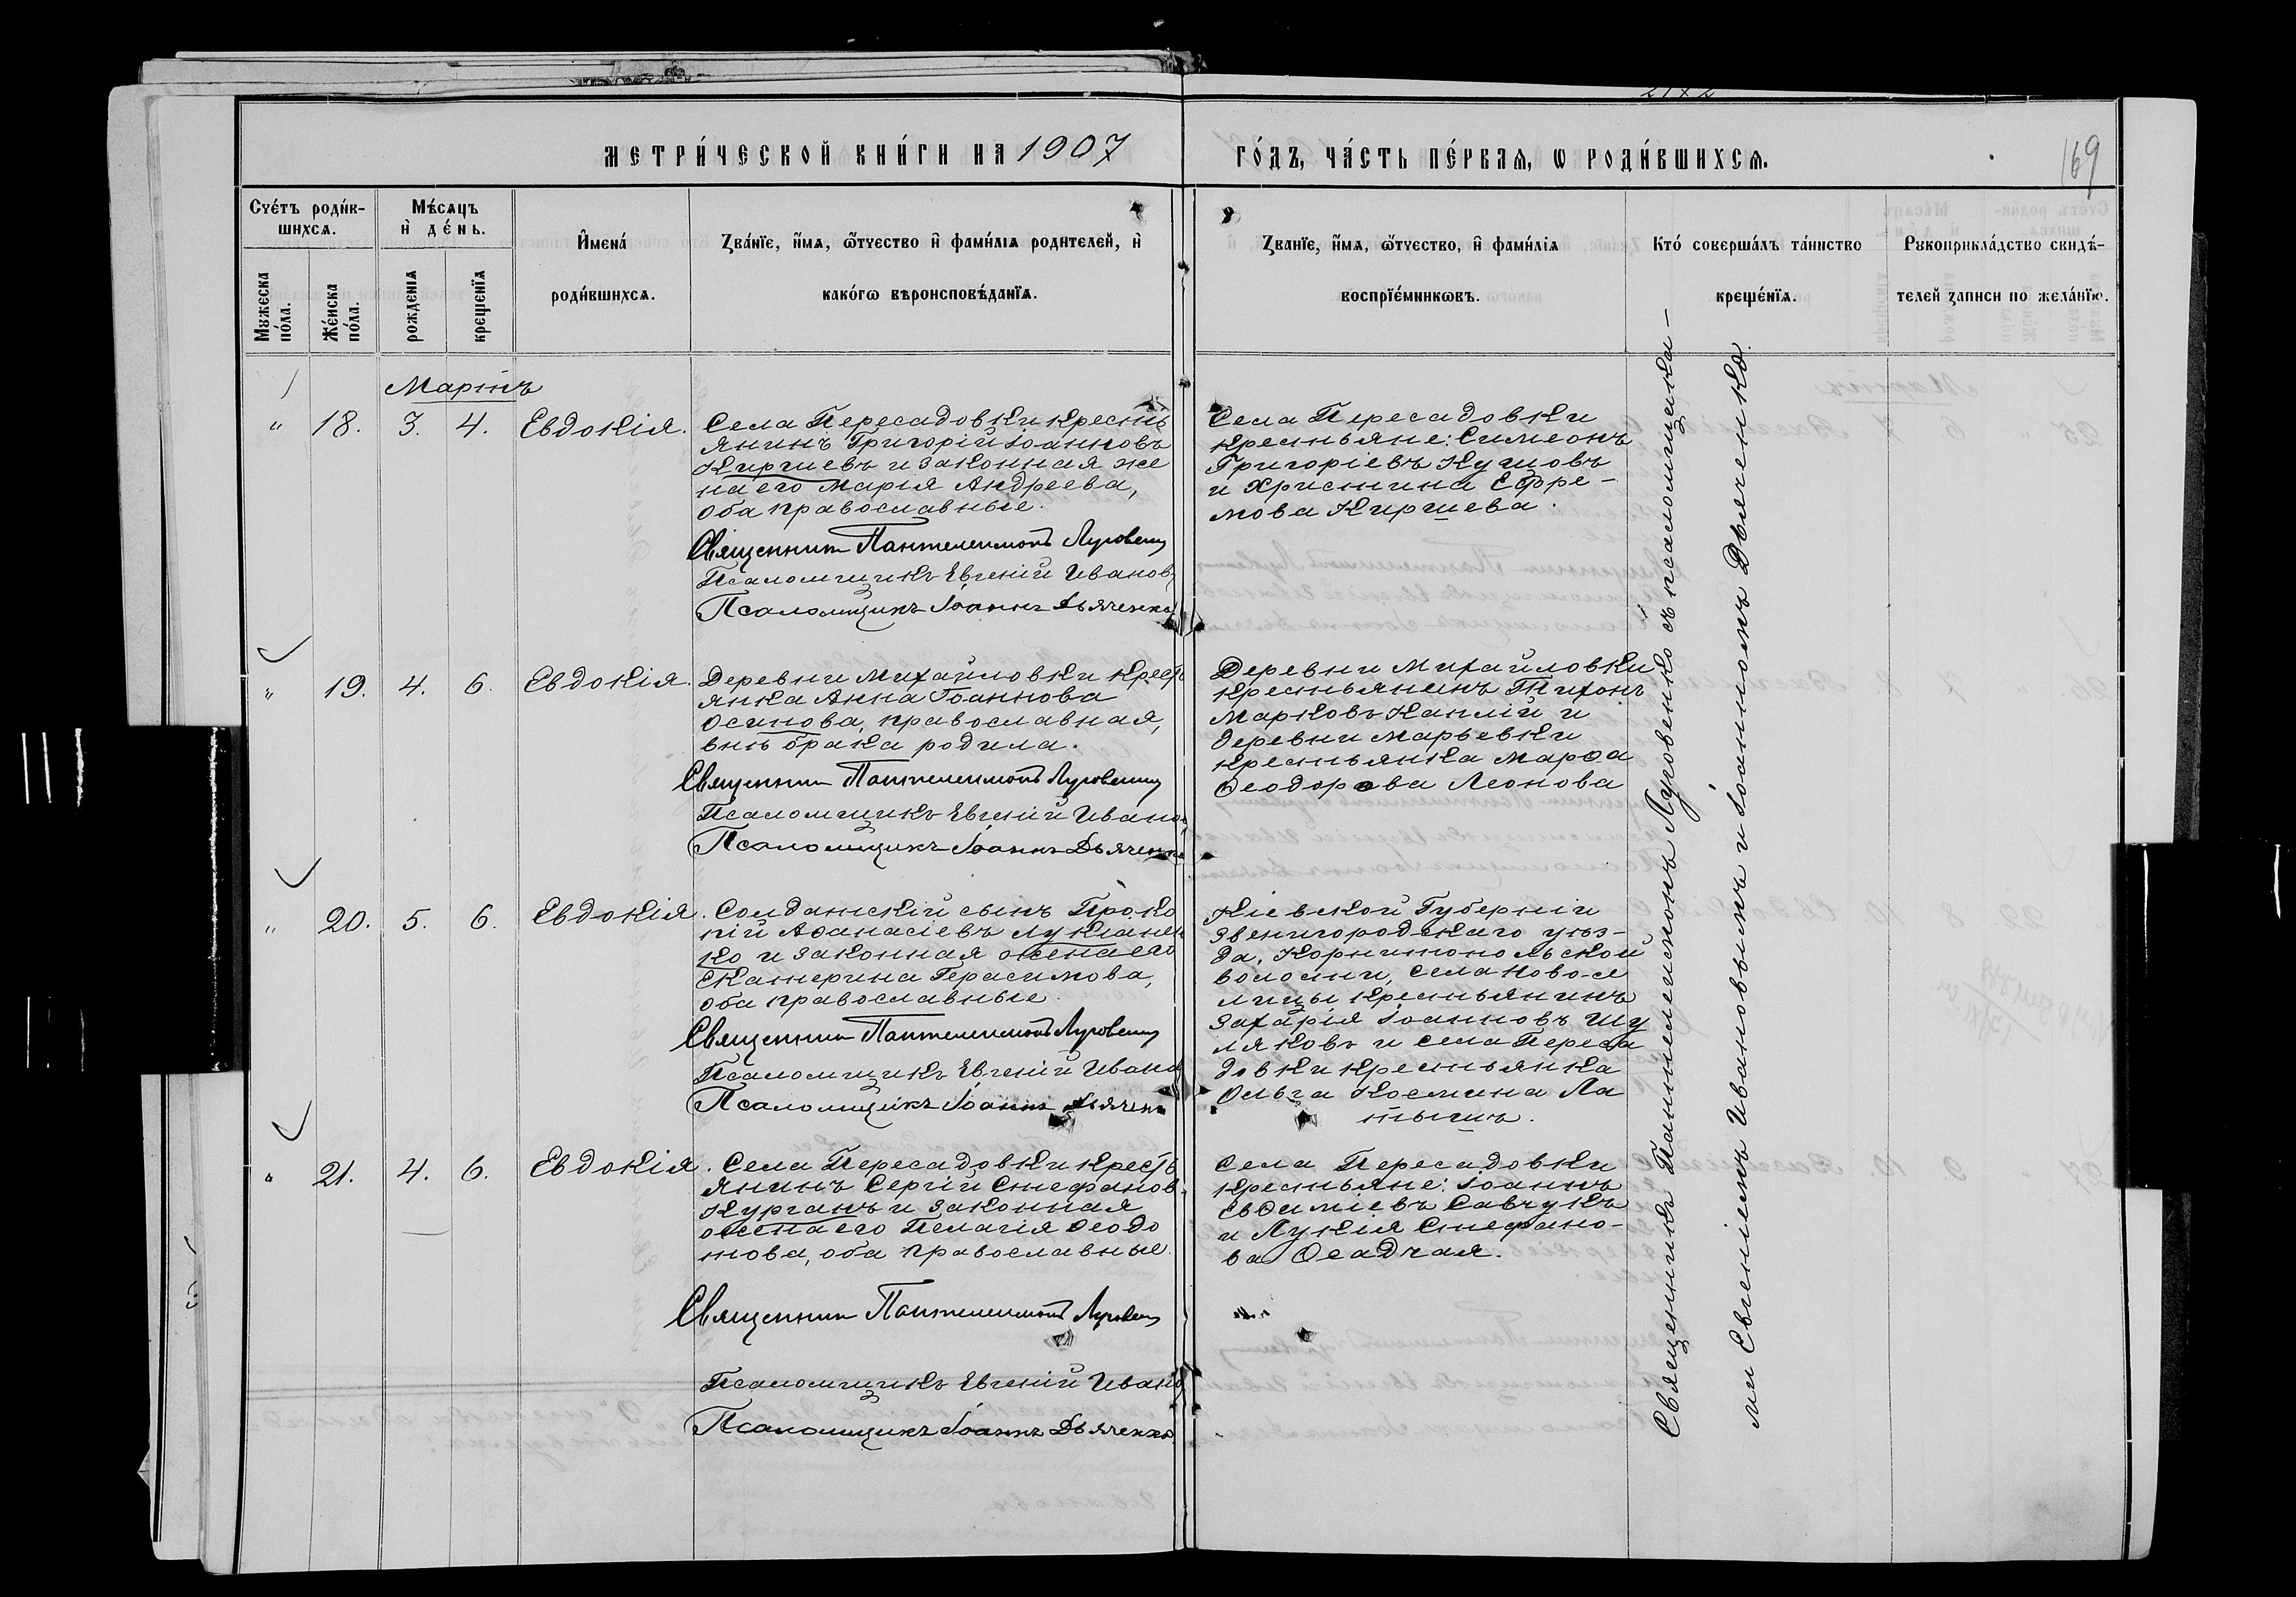 МЕТРИ́ЧЕСКОЙ КНИ́ГИ НА 1907
ГО́ДЪ, ЧА́СТЬ ПЕ́РВАѦ, Ѡ РОДИ́ВШИХСѦ.
169
Сче́тъ роди́в-
шихсѧ.
Мꙋжеска
по́ла.
Же́нска
по́ла.
Мѣ́сѧцъ
и҆ де́нь.
рожденїѧ
крещенїѧ
И҆мена́
роди́вшихсѧ.
Ꙁва́нїе, и҆́мѧ, ѻ҆́тчество и҆ фами́лїѧ родителей, и҆
како́гѡ вѣроисповѣ́данїѧ.
Ꙁванїе, и҆́мѧ, ѻ҆́тчество, и҆ фами́лїѧ
воспрїе́мникѡвъ.
Кто́ соверша́лъ та́инство
креще́нїѧ.
Рꙋкоприкла́дство свидѣ́-
телей ꙁаписи по жела́нїю.
Мартъ
" 18. 3. 4. Евдокія.
Села Пересадовки кресть
янинъ Григорій Іоанновъ
Киршевъ и законная же
на его Марія Андреева,
оба православные.
Священник Пантелеимонъ Луговенко
Псаломщикъ Евгеній Иванов
Псаломщикъ Іоаннъ Дьяченко
Села Пересадовки
крестьяне: Симеонъ
Григоріевъ Кушовъ
и Христина Ефре-
мова Киршева.
" 19. 4. 6. Евдокія.
Деревни Михайловки крест
янка Анна Іоаннова
Осипова, православная,
внѣ брака родила.
Священник Пантелеимонъ Луговенко
Псаломщикъ Евгеній Иванов
Псаломщикъ Іоаннъ Дьяченко
Деревни Михайловки
крестьянинъ Тихонъ
Марковъ Каплій и
деревни Марьевки
крестьянка Марѳа
Ѳеодорова Леонова
" 20. 5. 6. Евдокія.
Солданскій сынъ Проко
пій Аѳанасіевъ Лукіанен
ко и законная жена его
Екатерина Герасимова,
оба православные.
Священник Пантелеимонъ Луговенко
Псаломщикъ Евгеній Иванов
Псаломщикъ Іоаннъ Дьяченко
Кіевской Губерніи
Звенигородскаго уѣз-
да, волости, села Ново-се
лицы крестьянинъ
Захарія Іоанновъ Шу
ляковъ и села Переса
довки крестьянка
Ольга Космина Ла
тышъ.
" 21. 4. 6. Евдокія.
Села Пересадовки кресть
янинъ Сергій Стефанов.
Курганъ и законная
жена его Пелагія Ѳеодо
това, оба православные.
Священник Пантелеимонъ Луговенко
Псаломщикъ Евгеній Иванов
Псаломщикъ Іоаннъ Дьяченко
Села Пересадовки
крестьяне: Іоаннъ
Евѳиміевъ Савчукъ
и Лукія Стефано-
ва Осадчая.
Священникъ Пантелеимонъ Луговенко съ псаломщика-
ми Евгеніемъ Ивановымъ и Іоанномъ Дьяченко.